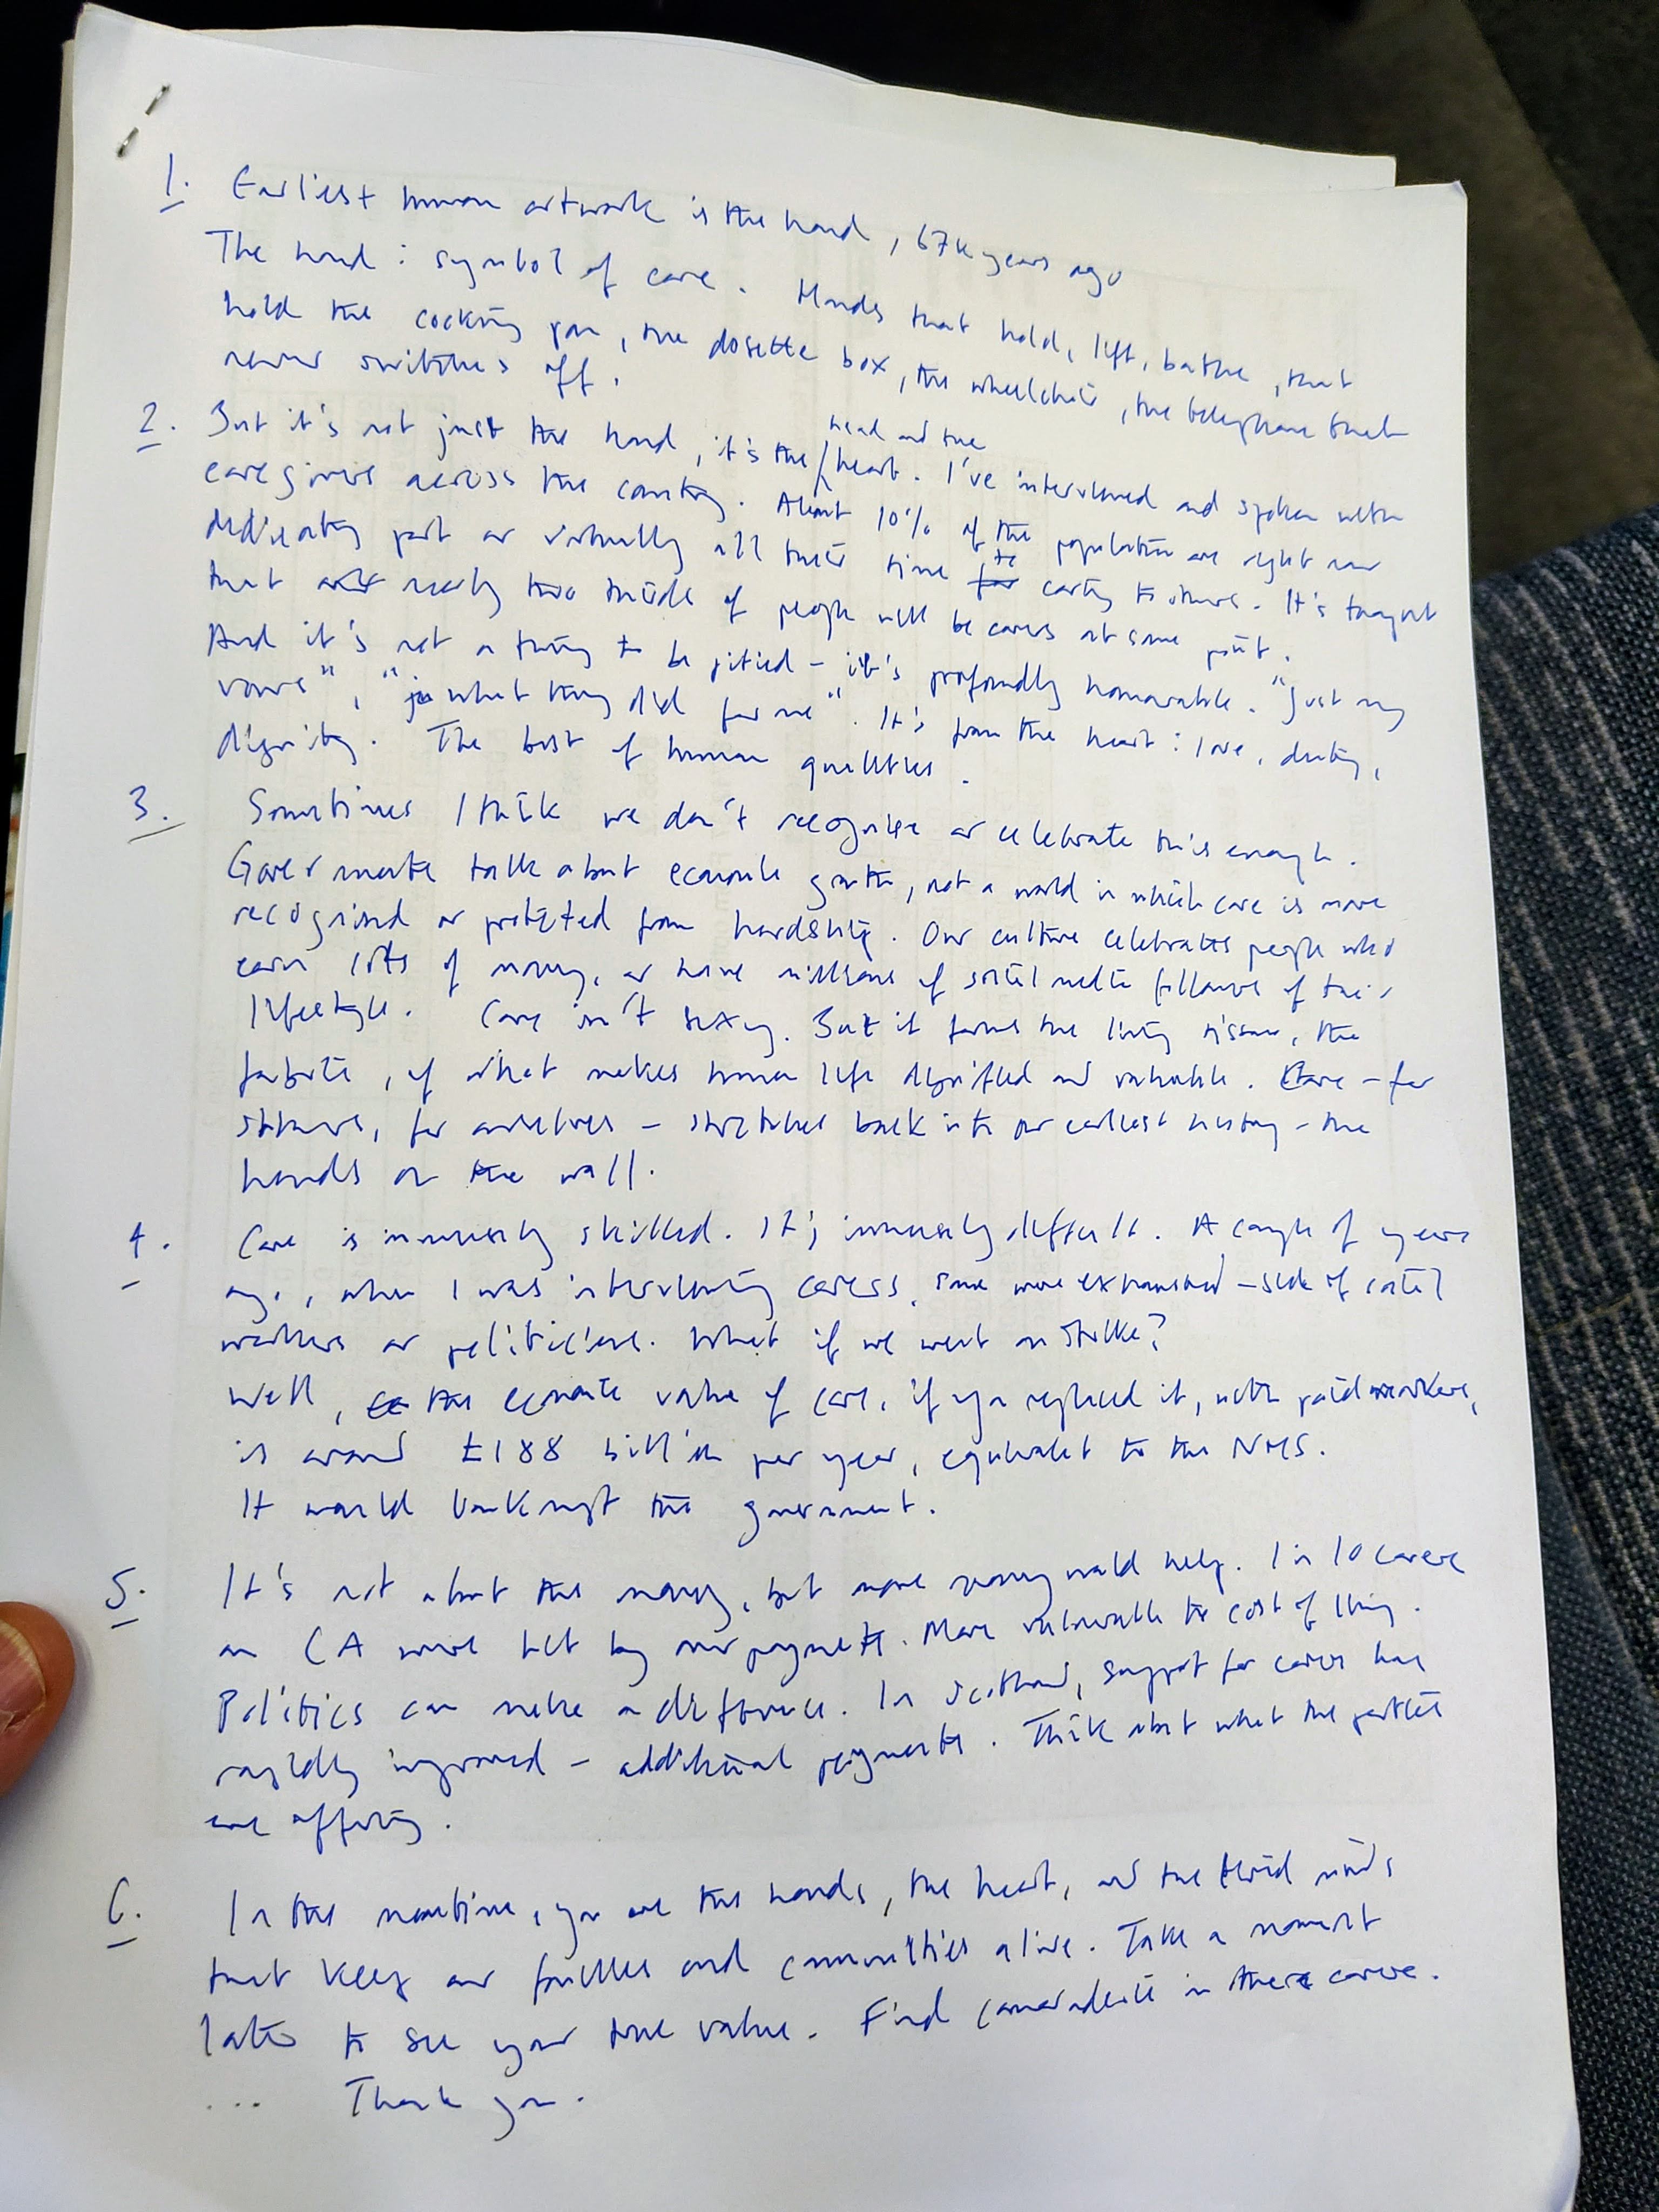 1. Earliest human artwork is the hand, 67k years ago
The hand : symbol of care. Hands that hold, lift, bathe, that
hold the cooking pan, the dosette box, the wheelchair, the telephone that
never switches off.
2. But it's not just the hand, it's the head and the heart. I've interviewed and spoken with
caregivers across the country. About 10% of the population are right now
dedicating part or virtually all their time to caring to others. It's thought
that nearly two thirds of people will be carers at some point.
And it's not a thing to be pitied – it's profoundly honourable. "Just my
vows", "what they did for me". It's from the heart : love, duty,
dignity. The best of human qualities.
3. Sometimes I think we don't recognise or celebrate this enough.
Governments talk about economic growth, not a world in which care is more
recognised or protected from hardship. Our culture celebrates people who
earn lots of money, or have millions of social media followers of their
lifestyle. Care isn't sexy. But it forms the living tissue, the
fabric, of what makes human life dignified and valuable. Care – for
others, for ourselves – stretches back into our earliest history – the
hands on the wall.
4. Care is immensely skilled. It's immensely difficult. A couple of years
ago, when I was interviewing carers, some were exhausted – sick of social
workers or politicians. What if we went on strike?
Well, the economic value of care, if you replaced it, with paid workers,
is around £188 billion per year, equivalent to the NHS.
It would bankrupt the government.
5. It's not about the money, but more money would help. 1 in 10 carers
on CA were hit by overpayments. More vulnerable to cost of living.
Politics can make a difference. In Scotland, support for carers has
rapidly improved – additional payments. Think about what the parties
are offering.
6. In the meantime, you are the hands, the heart, and the minds
that keep our families and communities alive. Take a moment
later to see your true value. Find camaraderie in there carers.
... Thank you.